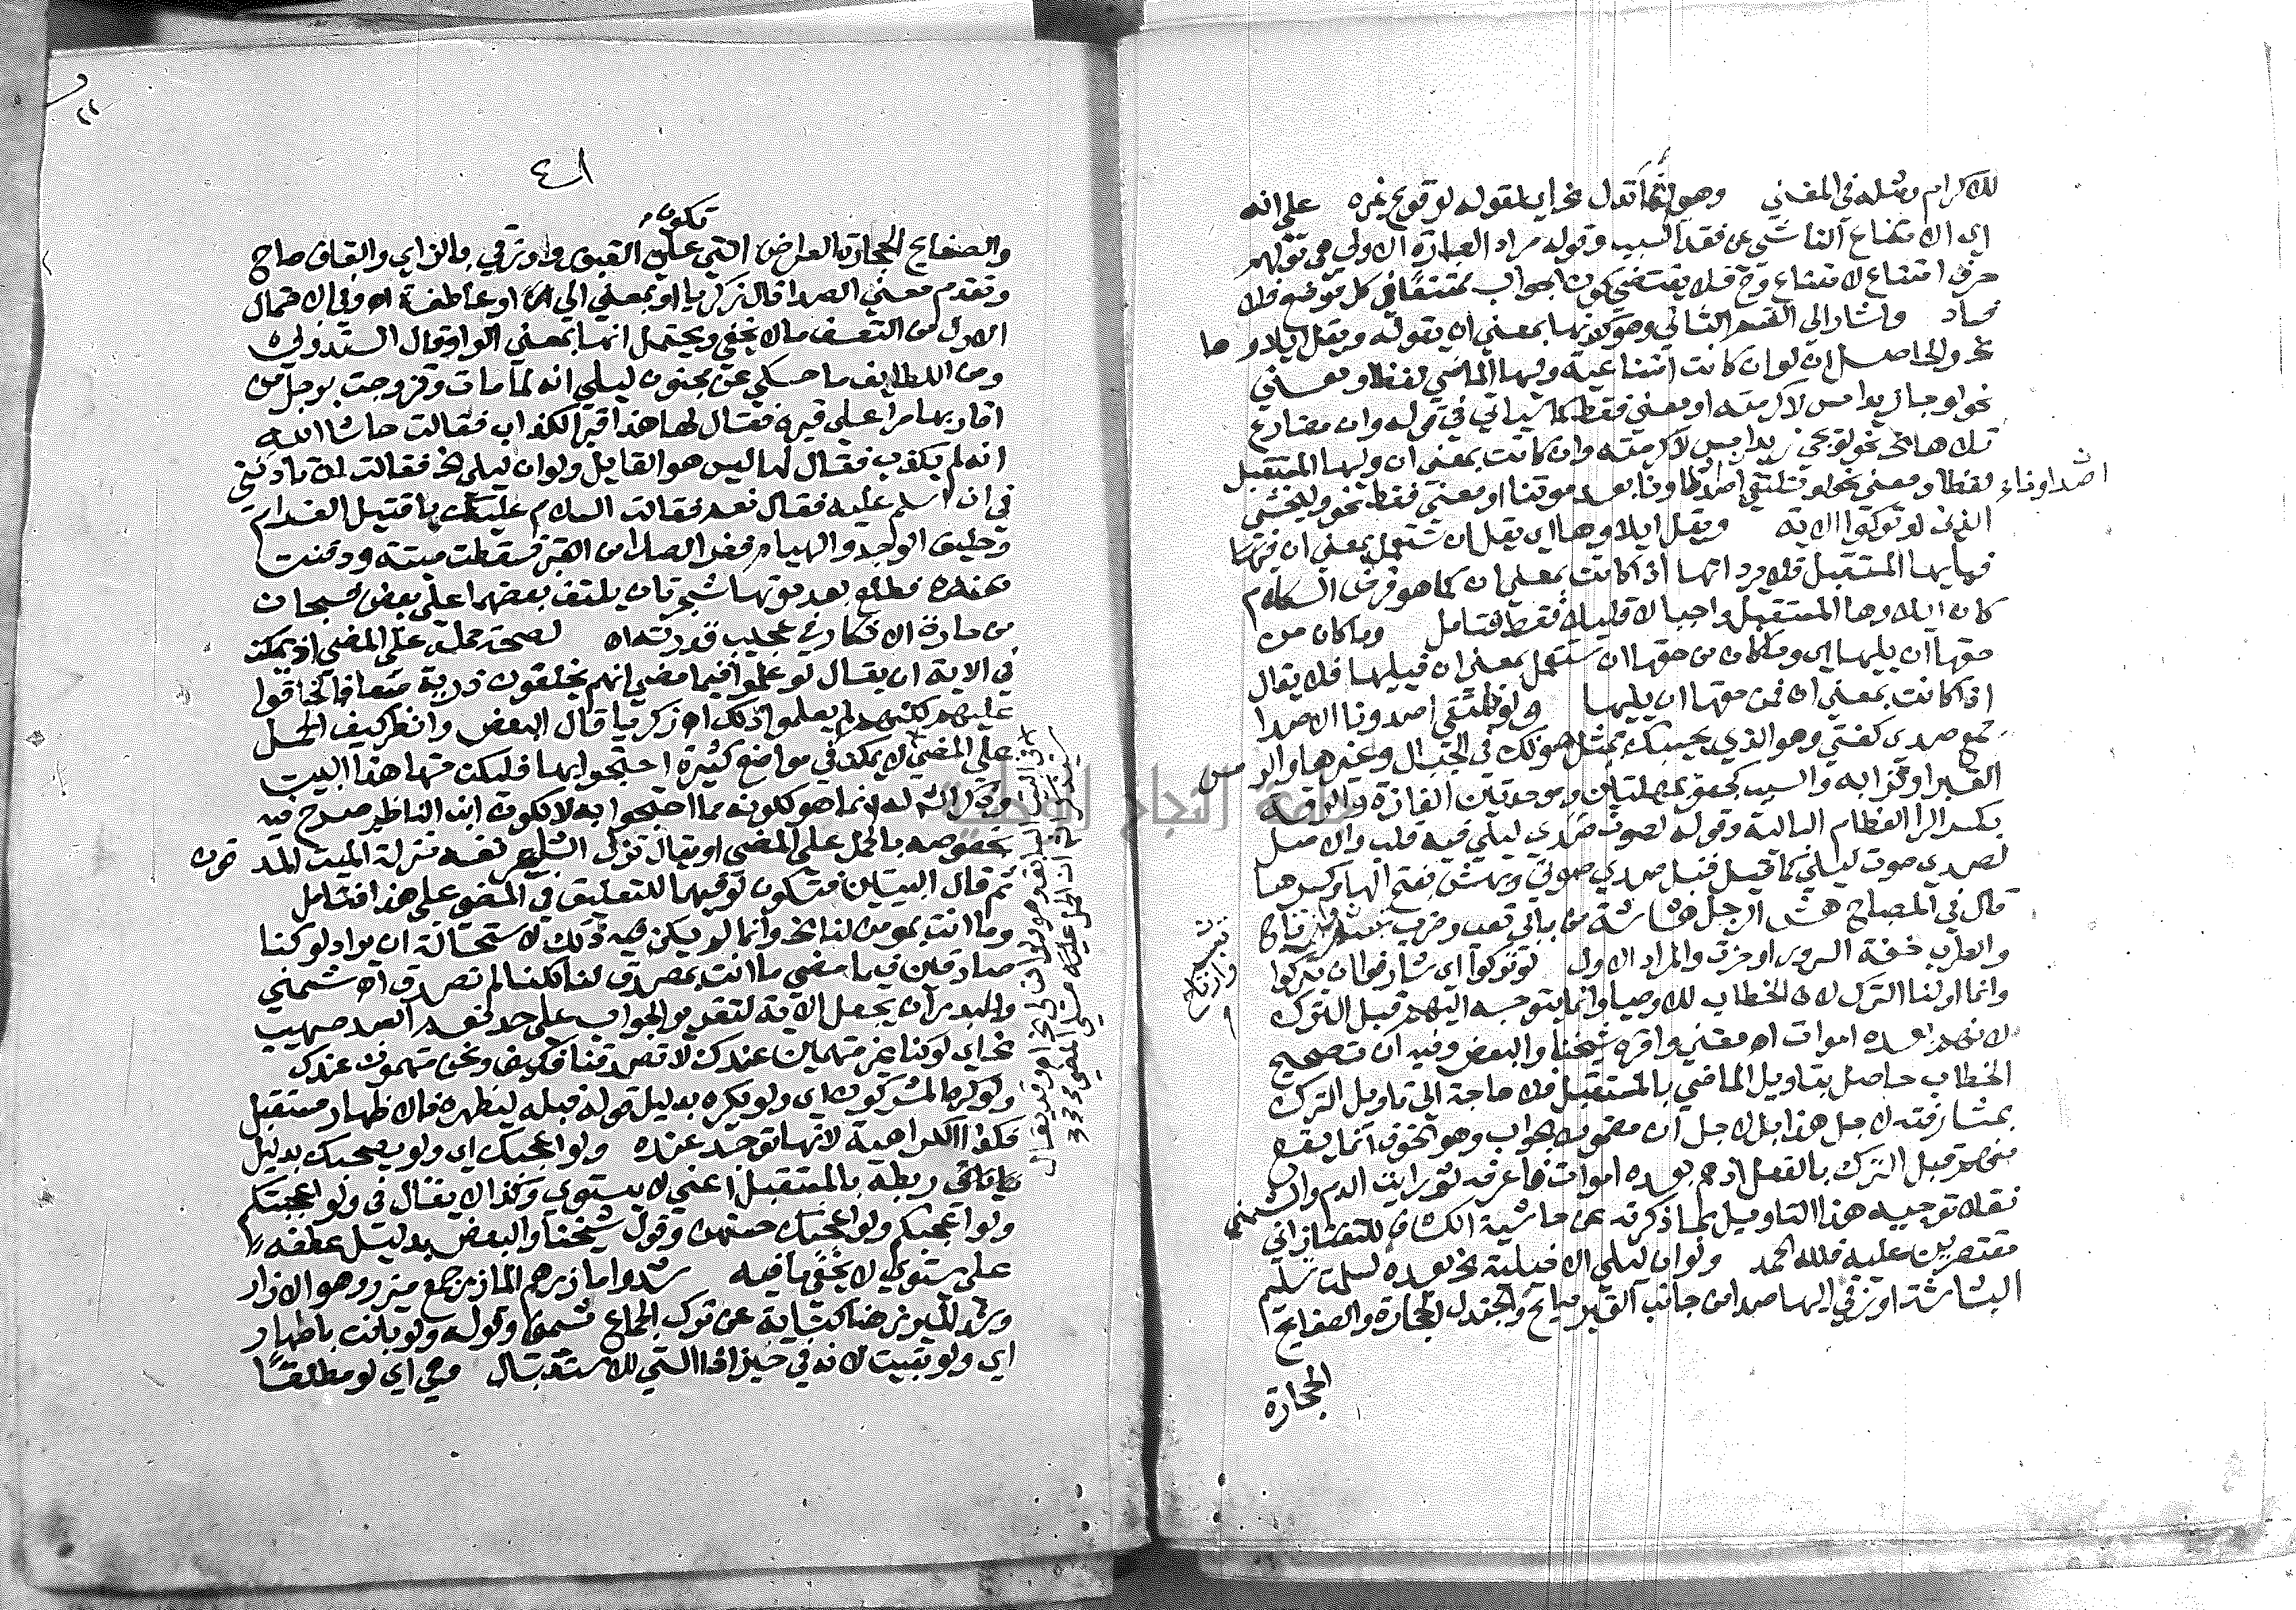 للاكرام ومثله في المغني وهو لما تقول نحر اي لمقوله لوقوع غيره على انه
اي الامتناع الناشي عن فقد السبب وقوله مراد العبارة الاولى هي قولهم
حرف امتناع لامتناع وح فلا يقتضي كون الجواب ممتنعا في كل موضع فلا
فساد واشار الى القسم الثاني وهو كونها بمعنى ان بقوله ويقل ايلاوها
نحر والحاصل ان لو ان كانت امتناعية وليها الماضي لفظا ومعنى
نحو لو جا زيد امس لاكرمته او معنى فقط كما سياتي في قوله وان مضارع
تلاها نحر نحو لو يجي زيد امس لاكرمته وان كانت بمعنى ان وليها المستقبل
لفظا ومعنى نحو لو تلتقي اصداونا بعد موتنا او معنى فقط نحو وليخش
اصداونا
الذين لو تركوا الاية ويقل ايلاوها اي يقل ان تستعمل بمعنى ان فيتها
فيما يليها المستقبل فلا يرد انها اذا كانت بمعنى ان كما هو فرض الكلام
كان ايلاوها المستقبل واجبا لا قليلا فقط فتامل وما كان من
حقها ان يليها اي وما كان من حقها ان تستعمل بمعنى ان فيليها فلا يقال
اذا كانت بمعنى ان فمن حقها ان يليها ولو تلتقي اصدونا الاصدا
جمع صدى كفتى وهو الذي يجيبك بمثل صوتك في الجبال وغيرها والرمس
القبر او ترابه والسبسب كجعفر بمهملتين وموحدتين المفازة والرمة
بكسر الرا العظام البالية وقوله لصوت صدى ليلى فيه قلب والاصل
لصدى صوت ليلى كما قيل قبل صدى صوتي ويهش بفتح الها وكسرها
قال في المصباح هش الرجل هشاشة من بابي تعب وضرب
تبسم وارتاح
والطرب خفة السرور او حزن والمراد الاول لو تركوا اي شارفوا ان يتركوا
وانما اولنا الترك لان الخطاب للاوصيا وانما يتوجه اليهم قبل الترك
لانهم بعده اموات اه مغني واقره شيخنا والبعض وفيه ان تصحيح
الخطاب حاصل بتاويل الماضي بالمستقبل فلا حاجة الى تاويل الترك
بمشارفته لاجل هذا بل لاجل ان مضمون الجواب وهو الخوف انما يقع
منهم قبل الترك بالفعل اذ هم بعده اموات فاعرفه ثم رايت الدم والشمني
نقلا توجيه هذا التاويل بما ذكرته عن حاشية الكشاف للتفتازاني
مقتصرين عليه فلله الحمد ولو ان ليلى الاخيلية نحر بعده لسلمت تسليم
البشاشة او زقى اليها صدا من جانب القبر صايح والجندل الحجارة والصفايح
الحجارة
٤١
والصفايح الحجارة العراض التي تكون على القبور وزقى بالزاي والقاف صاح
وتقدم معنى الصدا قال زكريا او بمعنى الى ان او عاطفة اه وفي الاحتمال
الاول من التعسف ما لا يخفى ويحتمل انها بمعنى الواو قال السندوبي
ومن اللطايف ما حكي عن مجنون ليلى انه لما مات وتزوجت برجل من
اقاربها مرا على قبره فقال لها هذا قبر الكذاب فقالت حاشا الله
انه لم يكذب فقال لها اليس هو القايل ولو ان ليلى نحر فقالت له تاذن لي
في ان اسلم عليه فقال نعم فقالت السلام عليك يا قتيل الغرام
وحليف الوجد والهيام ففر الصدا من القبر فسقطت ميتة ودفنت
عنده فطلع بعد موتهما شجرتان يلتف بعضهما على بعض فسبحان
من حارت الافكار في عجيب قدرته اه لصحة حمله على المضي اذ يمكن
في الاية ان يقال لو علموا فيما مضى انهم يخلفون ذرية ضعافا لخافوا
عليهم لكنهم لم يعلموا ذلك اه زكريا قال البعض وانظر كيف الحمل
على المضي لا يمكن في مواضع كثيرة احتجوا بها فليكن منها هذا البيت
وكذا الشرله انما هو لكونه مما احتجوا به لا لكون ابن الناظم صرح فيه
بخصوصه بالحمل على المضي او يقال تنزل الشاعر نفسه منزلة الميت المدفون
ثم قال البيتين فتكون لو فيهما للتعليق في المضي على هذا فتامل
وما انت بمومن لنا نحر وانما لم يمكن فيه ذلك لاستحالة ان يراد لو كنا
صادقين فيما مضى ما انت بمصدق لنا لكنا لم نصدق اه شمني
ولا بد من ان يجعل الاية لتقدير الجواب على حد نعم العبد صهيب
نحر اي لو كنا غير متهمين عندك لا تصدقنا فكيف ونحن متهمون عندك
ولو كره المشركون اي ولو يكره بدليل قوله قبله ليظهره فالاظهار مستقبل
فكذا الكراهية لانها توجد عنده ولو اعجبك اي ولو يعجبك بدليل
ربطه بالمستقبل اعني لا يستوي وكذا يقال في ولو اعجبتكم
ولو اعجبكم ولو اعجبك حسنهن وقول شيخنا والبعض بدليل عطفه
على يستوي لا يخفى ما فيه شدوا مازرهم المازر جمع ميزر وهو الازار
وشد الميزر هنا كناية عن ترك الجماع شمني وقوله ولو باتت باطهار
اي ولو تبيت لانه في حيز اذا التي للاستقبال وهي اي لو مطلقا